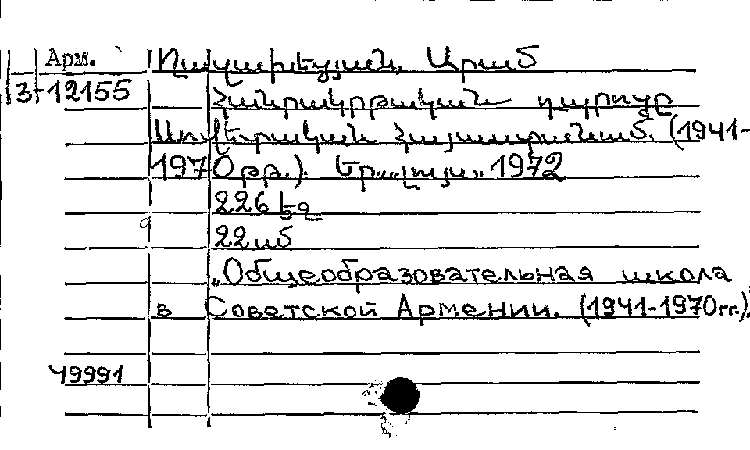 Арм.
3-12155
Ղազարեցյան, Արամ
Հանրակրթական դպրոցը
Սովետական Հայաստանում. (1941-
1970թթ.). Եր. „Լույս„ 1972
226 էջ
22 սմ
„Общеобразовательная школа
в Советской Армении. (1941-1970гг.).
49991